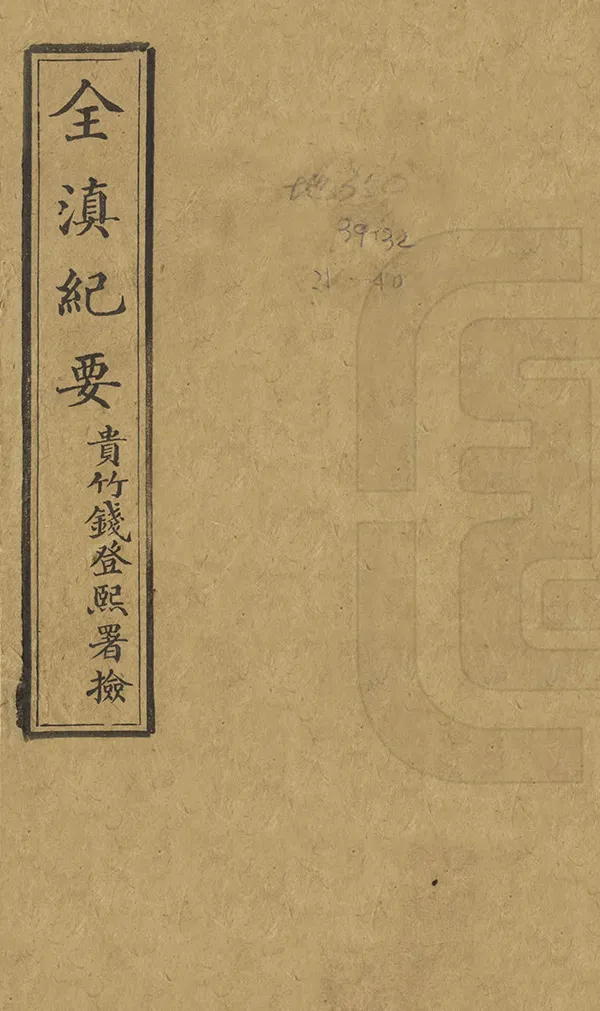 全滇紀要
貴竹錢登熙署撿
地350
39432
21-40